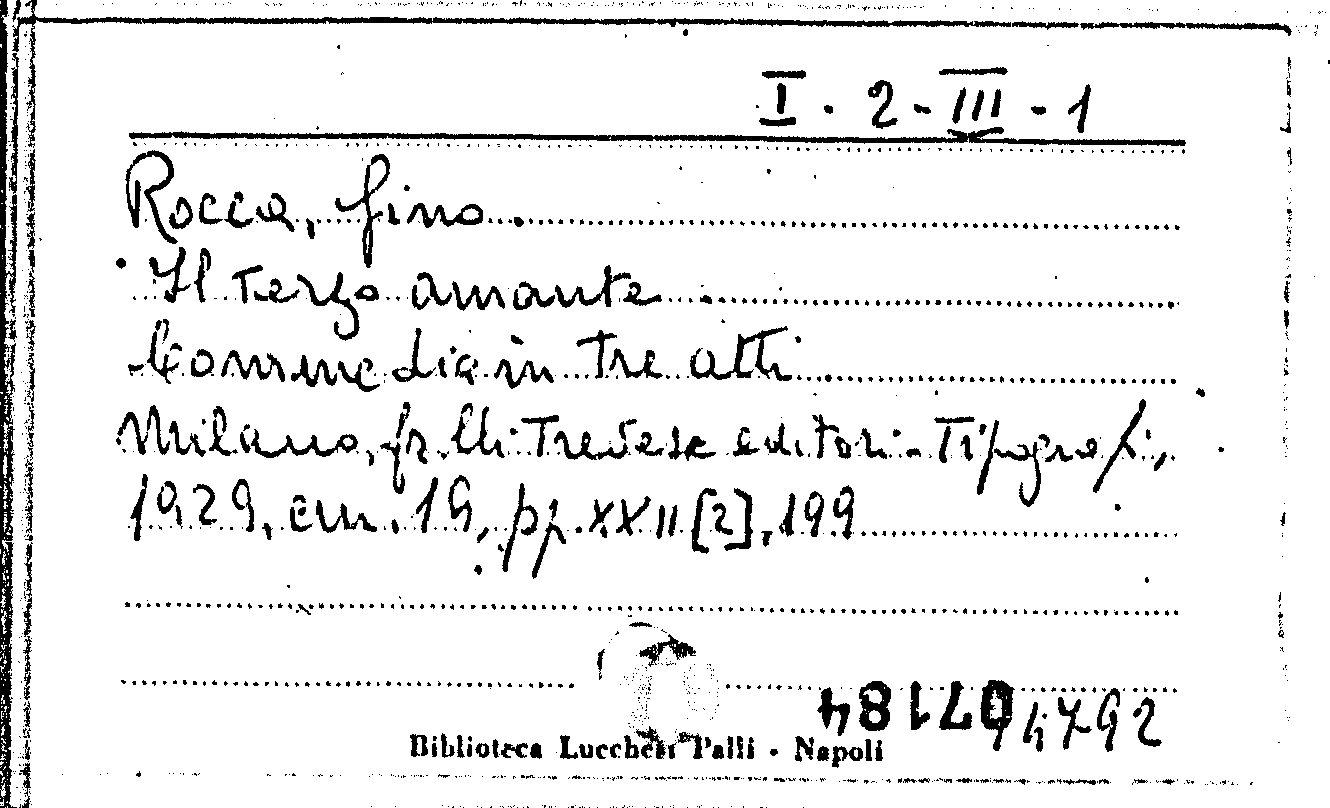 I. 2 - III - 1
Rocca, Gino.
Il terzo amante.
Commedia in tre atti.
Milano, fr.lli Treves editori-Tipografi,
1929, cm. 19, pp. XXII [2], 199
07184
Biblioteca Lucchesi Palli - Napoli